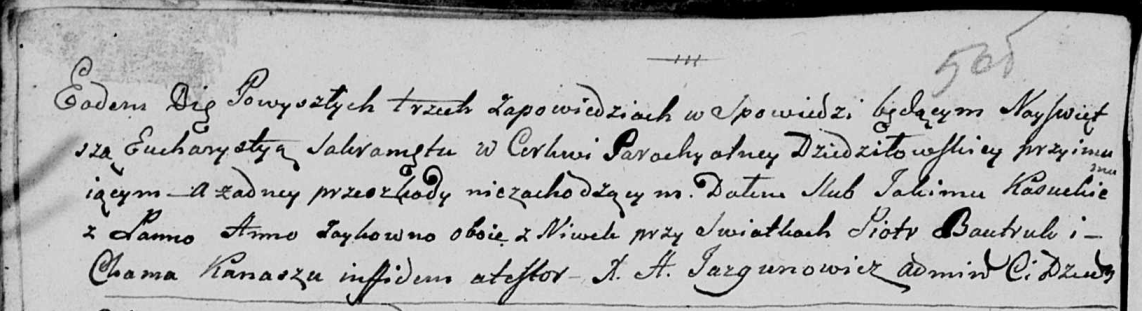 505
Eodem Die Powyszłych trzech zapowiedziach w Spowiedzi będącym Nayświęt
szą Eucharystyą Sakramętu w Cerkwi Parochyalney Dziedziłowskiey przyimu
iącym – a zadney przeszkody niezachodzącym. Dałem Slub Jakimu Kasuckie
mu
z Panno Anno Zaykowno oboie z Niwek przy Swiatkach Piotr Bautruk i –
Chama Kanaszu in fidem atestor – X. A. Jazgunowicz admind C. Dzied